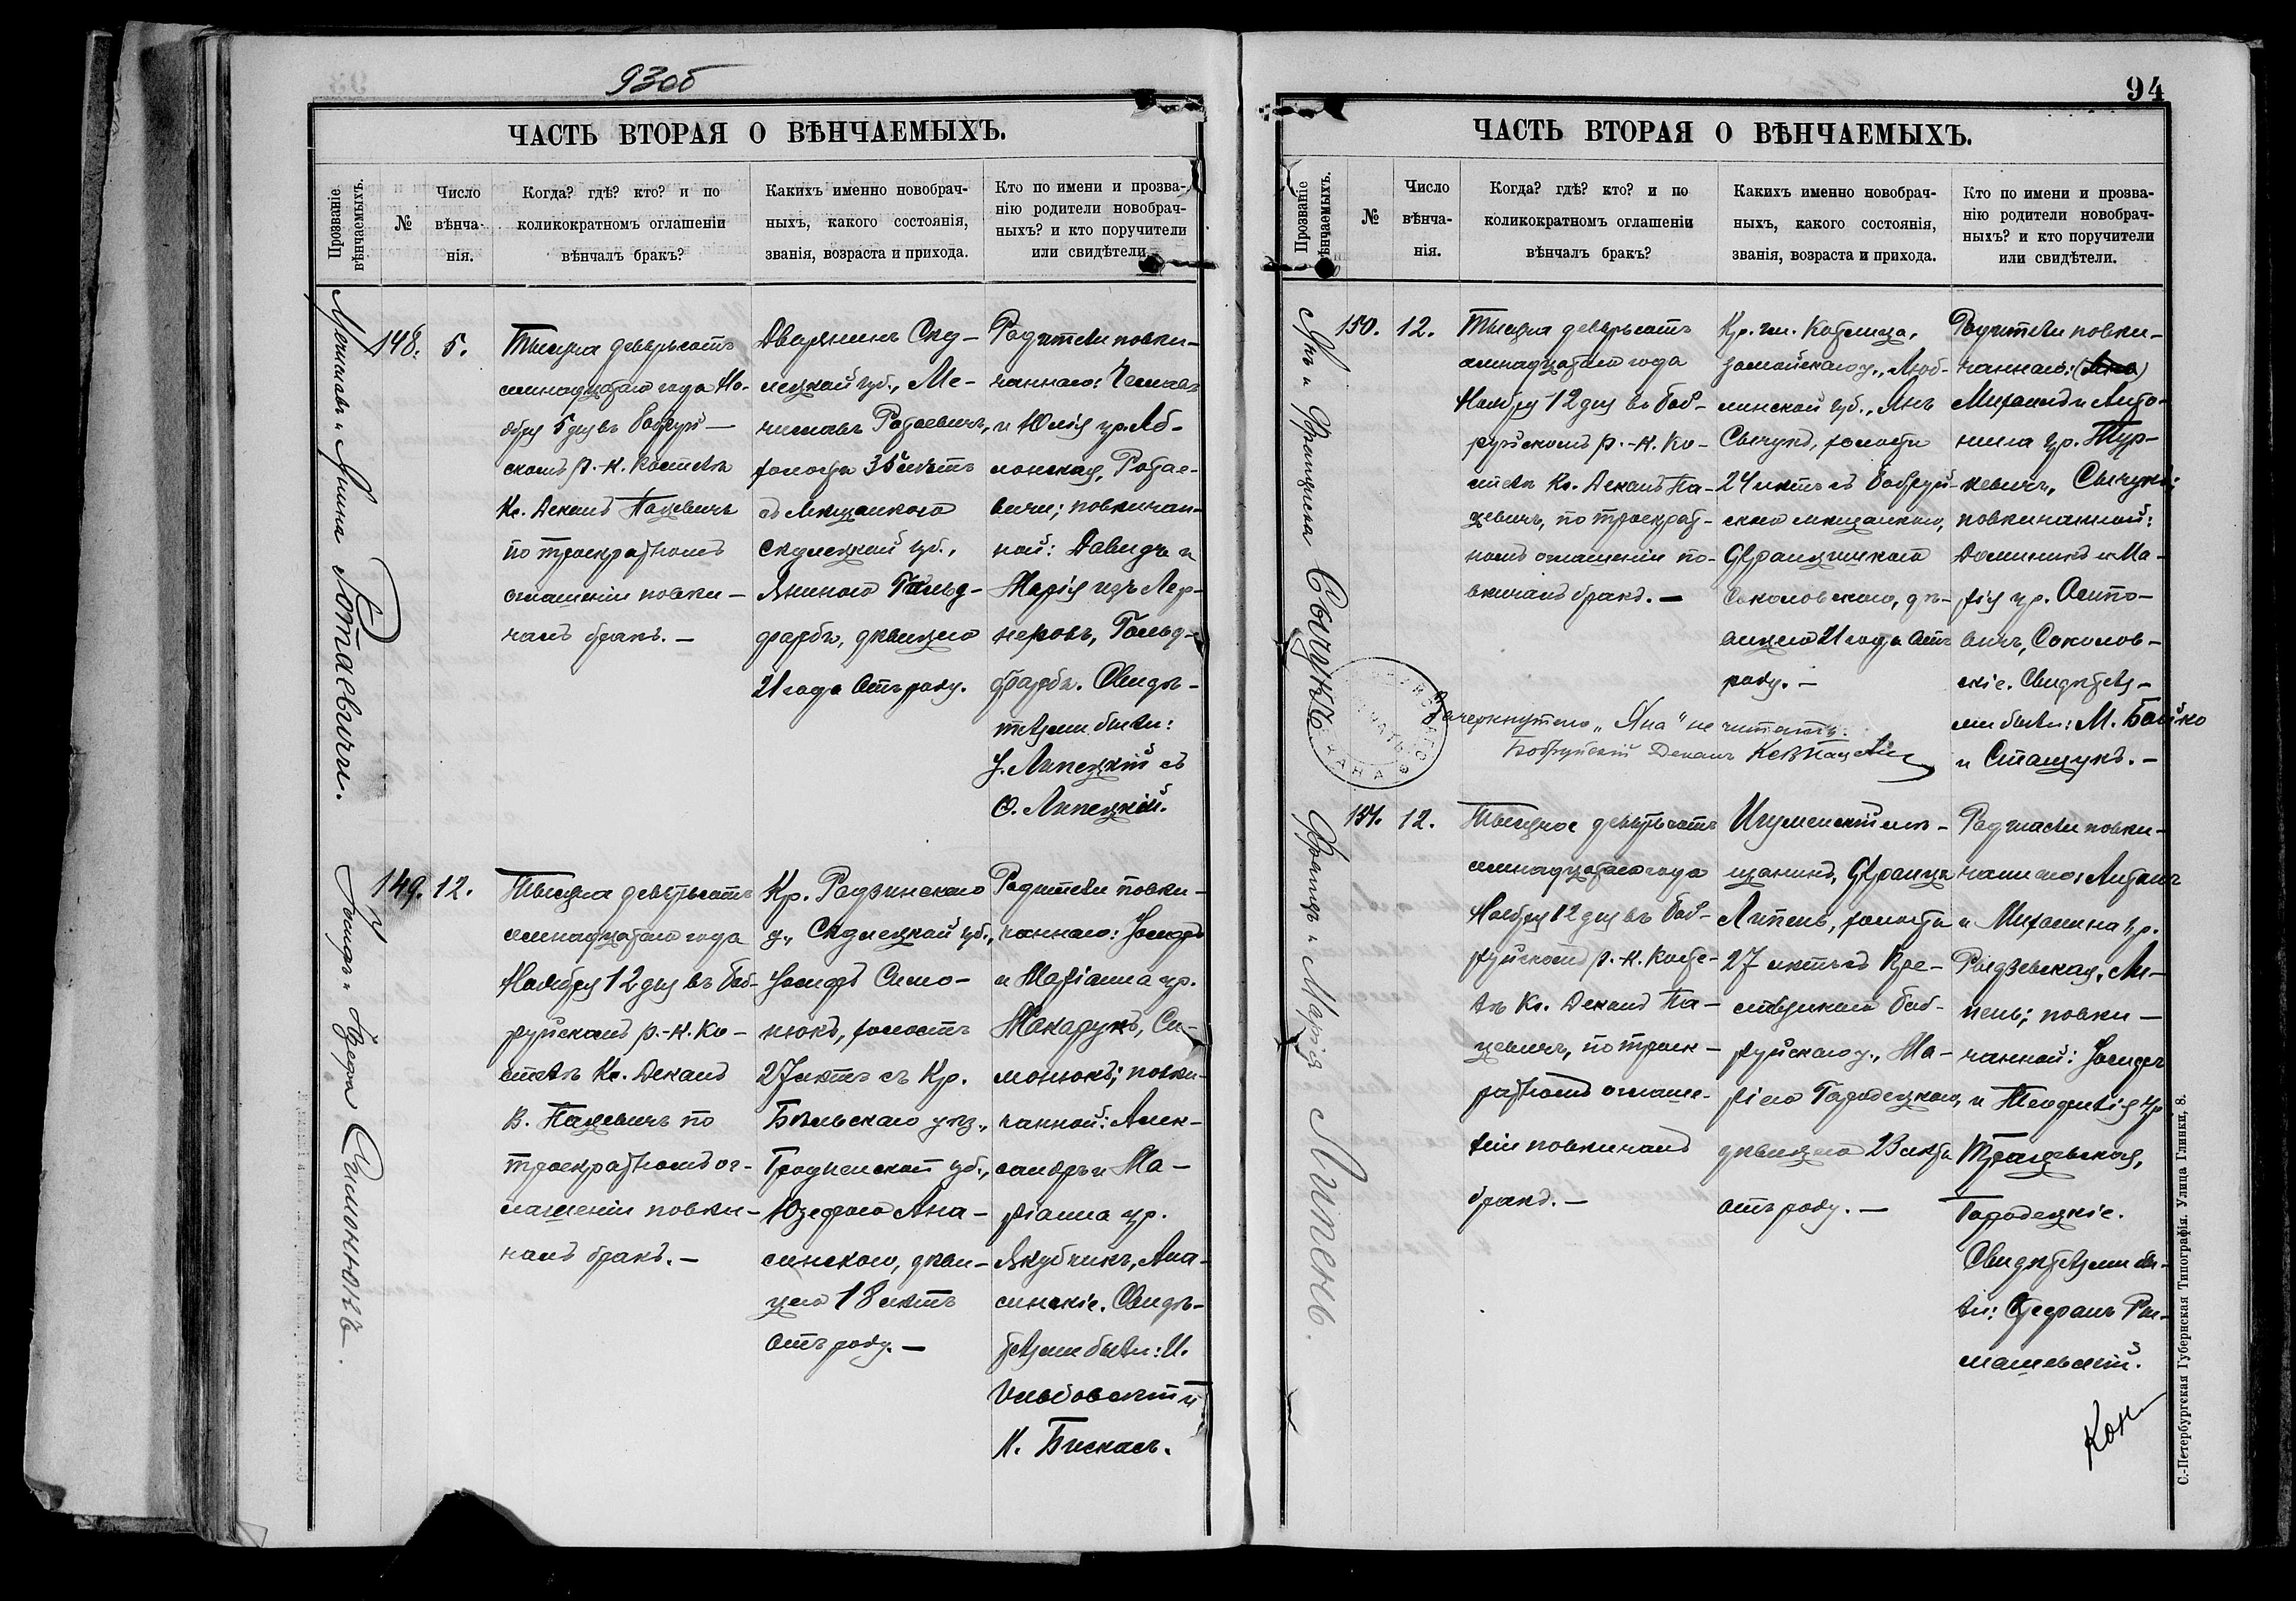 93об
ЧАСТЬ ВТОРАЯ О ВѢНЧАЕМЫХЪ.
Прозваніе вѣнчаемыхъ.
№
Число вѣнча-нія.
Когда? гдѣ? кто? и по
коликократномъ оглашеніи
вѣнчалъ бракъ?
Какихъ именно новобрач-
ныхъ, какого состоянія,
званія, возраста и прихода.
Кто по имени и прозва-
нію родители новобрач-
ныхъ? и кто поручители
или свидѣтели.
Мечиславъ и Янина Ротаевичи.
148.
5.
Тысяча девятьсотъ
семнадцатаго года Но-
ября 5 дня въ Бобруй-
скомъ р.-к. костелѣ
Кс. Деканъ Пацевичъ
по троекратномъ
оглашеніи повѣн-
чалъ бракъ. —
Дворянинъ Сѣд-
лецкой губ., Ме-
числавъ Ротаевичъ,
холостъ 35 лѣтъ
съ мѣщанкою
Сѣдлецкой губ.,
Яниною Гольд-
фарбъ, дѣвицею
21 года отъ роду.
Родители повѣн-
чаннаго: Чеславъ
и Юлія ур. Яб-
лонская, Ротае-
вичи; повѣнчан-
ной: Давидъ и
Марія изъ Лер-
неровъ, Гольд-
фарбъ. Свидѣ-
телями были:
І. Липецкій съ
О. Липецкій.
Іосифъ и Юзефа Симонюкъ.
149.
12.
Тысяча девятьсотъ
семнадцатаго года
Ноября 12 дня въ Боб-
руйскомъ р.-к. ко-
стелѣ Кс. Деканъ
В. Пацевичъ по
троекратномъ ог-
лашеніи повѣн-
чалъ бракъ. —
Кр. Радзинскаго
у., Сѣдлецкой губ.,
Іосифъ Симо-
нюкъ, холостъ
27 лѣтъ съ Кр.
Бѣльскаго уѣз.,
Гродненской губ.,
Юзефою Ана-
синскою, дѣви-
цею 18 лѣтъ
отъ роду. —
Родители повѣн-
чаннаго: Іосифъ
и Маріанна ур.
Макарукъ, Си-
монюкъ; повѣн-
чанной: Алек-
сандръ и Ма-
ріанна ур.
Якубчикъ, Ана-
синскіе. Свидѣ-
телями были: И.
и
К. Бискасъ.
94
ЧАСТЬ ВТОРАЯ О ВѢНЧАЕМЫХЪ.
Прозваніе вѣнчаемыхъ.
№
Число вѣнча-нія.
Когда? гдѣ? кто? и по
коликократномъ оглашеніи
вѣнчалъ бракъ?
Какихъ именно новобрач-
ныхъ, какого состоянія,
званія, возраста и прихода.
Кто по имени и прозва-
нію родители новобрач-
ныхъ? и кто поручители
или свидѣтели.
Янъ и Францишка Сычукъ.
150.
12.
Тысяча девятьсотъ
семнадцатаго года
Ноября 12 дня въ Боб-
руйскомъ р.-к. ко-
стелѣ Кс. Деканъ Па-
цевичъ, по троекрат-
номъ оглашеніи по-
вѣнчалъ бракъ. —
Кр. гм.
у., Люб-
линской губ., Янъ
Сычукъ, холостъ
24 лѣтъ съ Бобруй-
скою мѣщанкою,
Францишкою
Соколовскою, дѣ-
вицею 21 года отъ
роду. —
Родители повѣн-
чаннаго: (Яна)
Михаилъ и Анто-
нина ур. Тур-
кевичъ, Сычукъ;
повѣнчанной:
Доминикъ и Ма-
рія ур. Осипо-
вичъ, Соколов-
скіе. Свидѣтеля-
ми были: М. Бойко
и Стащукъ. —
Зачеркнутаго „Яна“ не читать.
Бобруйскій Деканъ Кс В Пацевичъ
Францъ и Марія Липень.
151.
12.
Тысяча девятьсотъ
семнадцатаго года
Ноября 12 дня въ Боб-
руйскомъ р.-к. косте-
лѣ Кс. Деканъ Па-
цевичъ, по троек-
ратномъ оглаше-
ніи повѣнчалъ
бракъ. —
Игуменскій мѣ-
щанинъ, Францъ
Липень, холостъ
27 лѣтъ съ Кре-
стьянкою Боб-
руйскаго у., Ма-
ріею Городецкою,
дѣвицею 23 лѣтъ
отъ роду. —
Родители повѣн-
чаннаго: Антонъ
и Михалина ур.
Рыдзевская, Ли-
пень; повѣн-
чанной: Іосифъ
и Теофилія ур.
Городецкіе.
Свидѣтелями бы-
ли: Стефанъ Ро-
машевскій.
Кон
С.-Петербургская Губернская Типографія. Улица Глинки, 8.